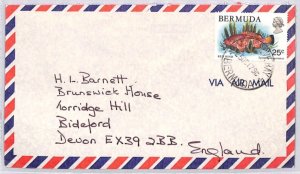 BERMUDA
25c
VIA AIR MAIL
H.L. Barnett
Brunswick House
Torridge Hill
Bideford
Devon EX39 2BB.
England.